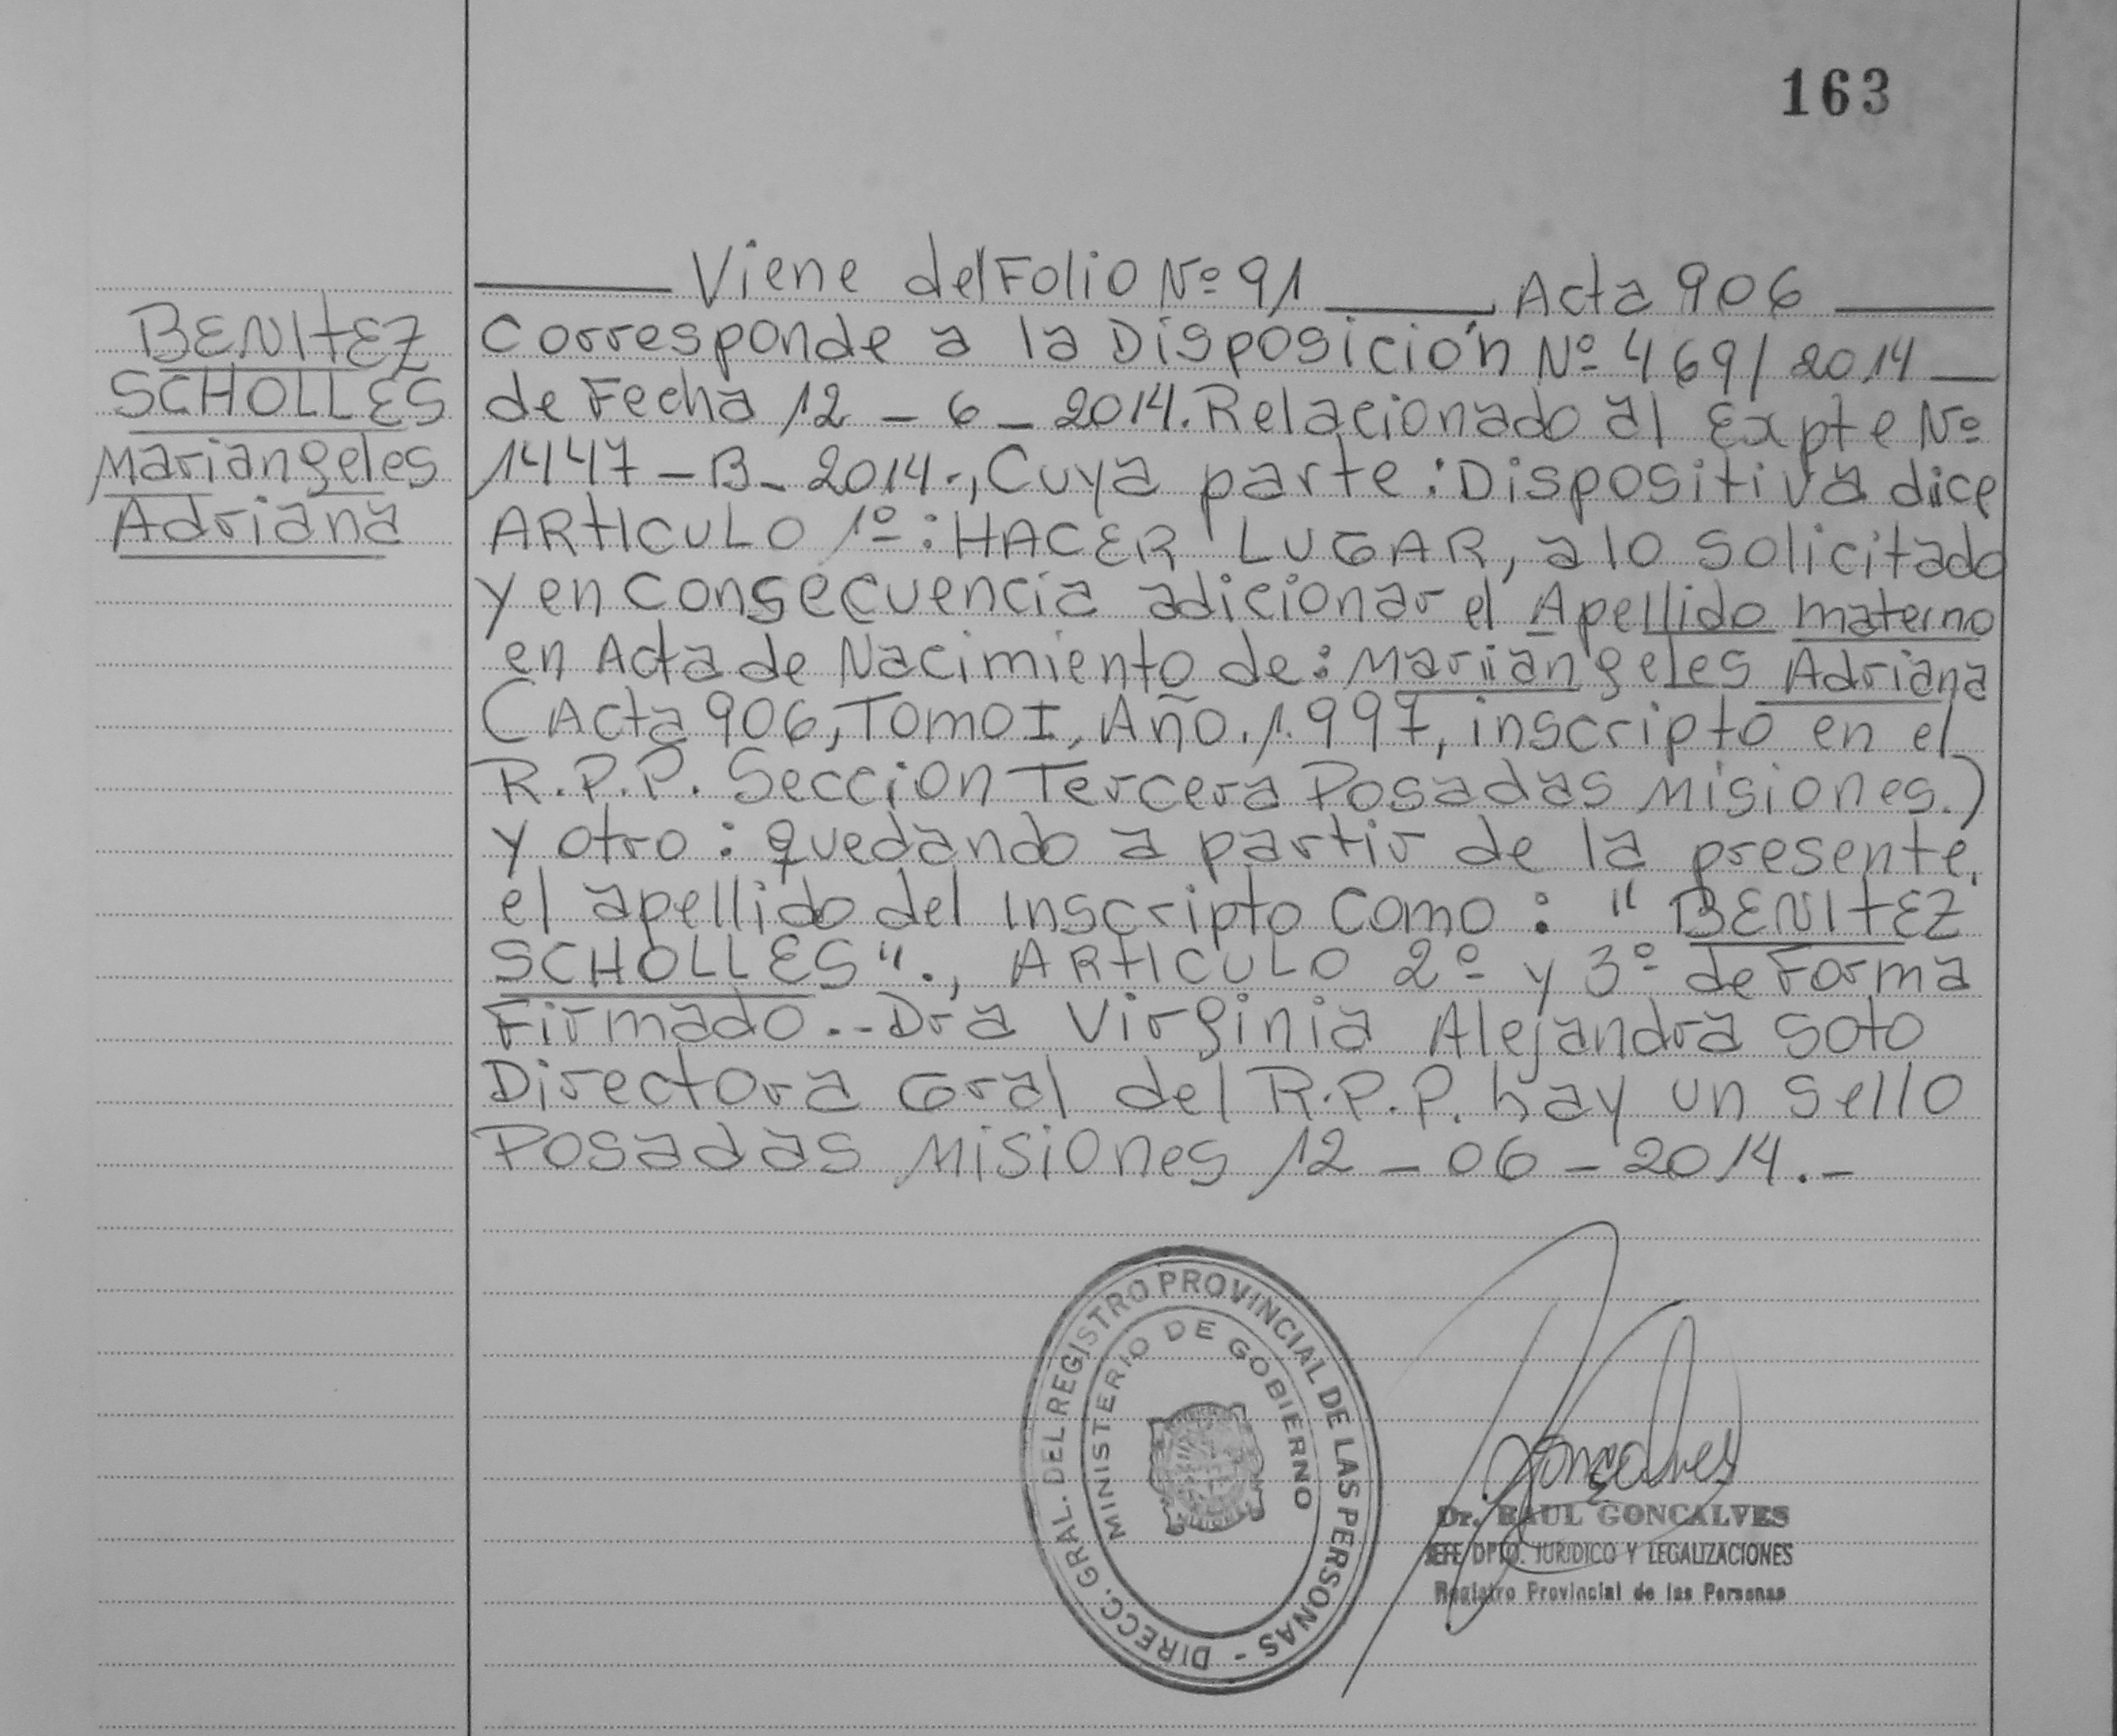 163
BENITEZ
SCHOLLES
Mariangeles
Adriana
Viene del Folio Nº 91 Acta 906
Corresponde a la Disposición Nº 469/2014
de Fecha 12 - 6 - 2014. Relacionado al Expte Nº
1447 - B - 2014 -, Cuya parte : Dispositiva dice
ARTICULO 1º : HACER LUGAR, a lo solicitado
y en consecuencia adicionar el Apellido materno
en Acta de Nacimiento de : Mariangeles Adriana
(Acta 906, Tomo I, Año. 1.997, inscripto en el
R.P.P. Seccion Tercera Posadas Misiones.)
y otro : quedando a partir de la presente,
el apellido del inscripto como : " BENITEZ
SCHOLLES"., ARTICULO 2º y 3º de Forma
Firmado.-- Dra Virginia Alejandra Soto
Directora Gral del R.P.P. hay un sello
Posadas Misiones 12 - 06 - 2014.-
DIRECC. GRAL. DEL REGISTRO PROVINCIAL DE LAS PERSONAS -
MINISTERIO DE GOBIERNO
Gonçalves
Dr. RAUL GONCALVES
JEFE DPTO. JURIDICO Y LEGALIZACIONES
Registro Provincial de las Personas